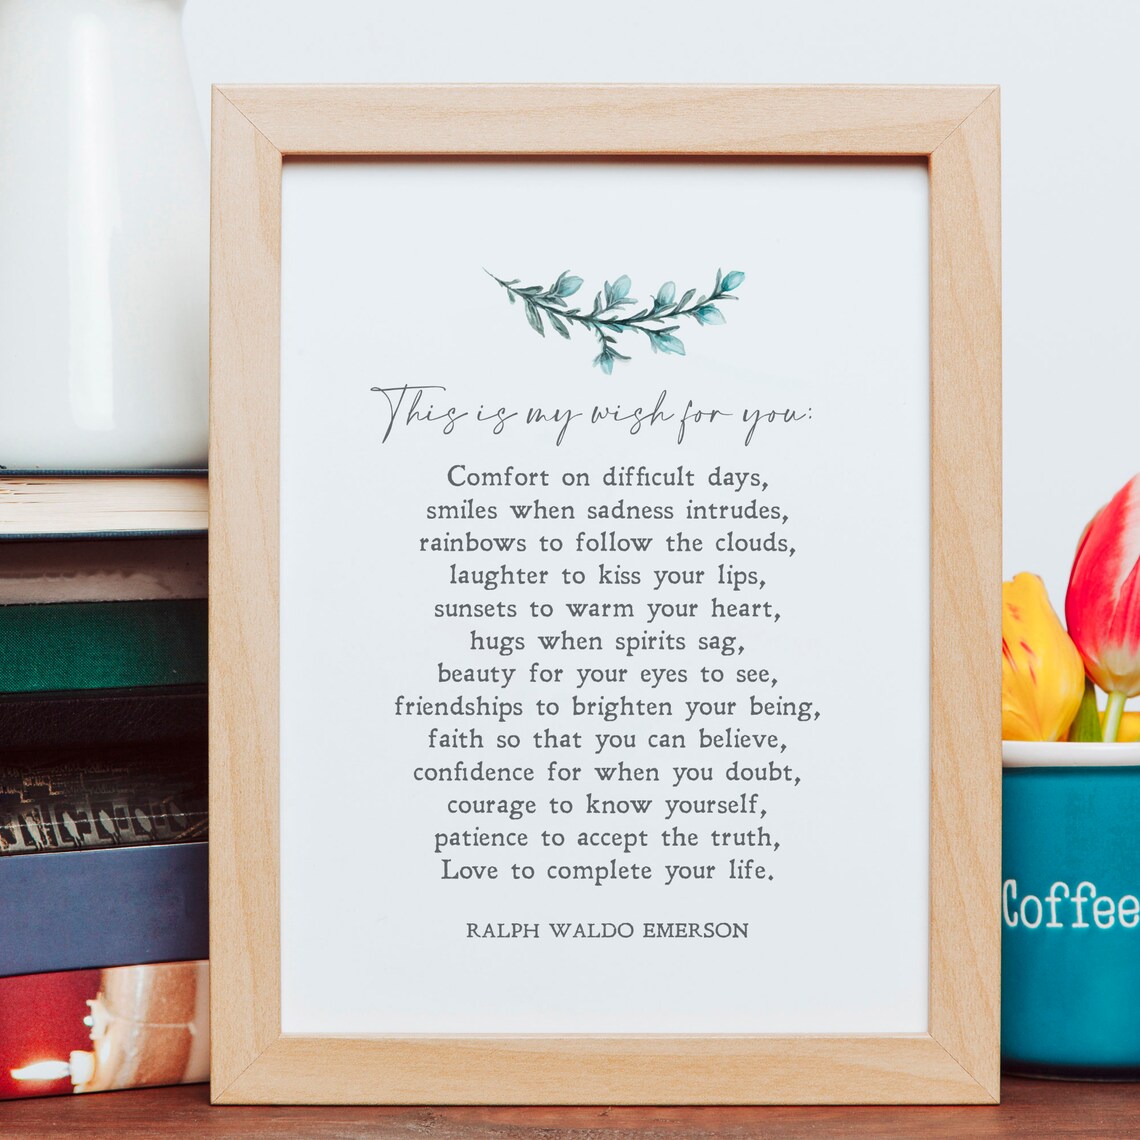 This is my wish for you:
Comfort on difficult days,
smiles when sadness intrudes,
rainbows to follow the clouds,
laughter to kiss your lips,
sunsets to warm your heart,
hugs when spirits sag,
beauty for your eyes to see,
friendships to brighten your being,
faith so that you can believe,
confidence for when you doubt,
courage to know yourself,
patience to accept the truth,
Love to complete your life.
RALPH WALDO EMERSON
Coffee